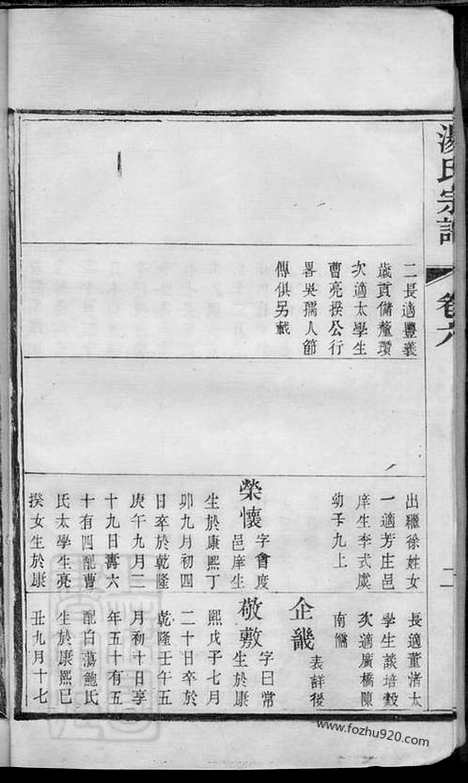 湯氏宗譜
卷六
二
二長適豐義
歲貢儲龍瓚
次適太學生
曹亮揆公行
畧吳孺人節
傳俱另載
出繼徐姓女
一適芳庄邑
庠生李式虞
幼子九上
榮懷字會度
邑庠生
生於康熙丁
卯九月初四
日卒於乾隆
庚午九月二
十九日壽六
十有四配曹
氏太學生亮
揆女生於康
長適董渚太
學生談培穀
次適廣橋陳
南儲
企畿表詳後
敬敷字曰常
生於康
熙戊子七月
二十日卒於
乾隆壬午五
月初十日享
年五十有五
配白蕩鮑氏
生於康熙己
丑九月十七
www.fozhu920.com